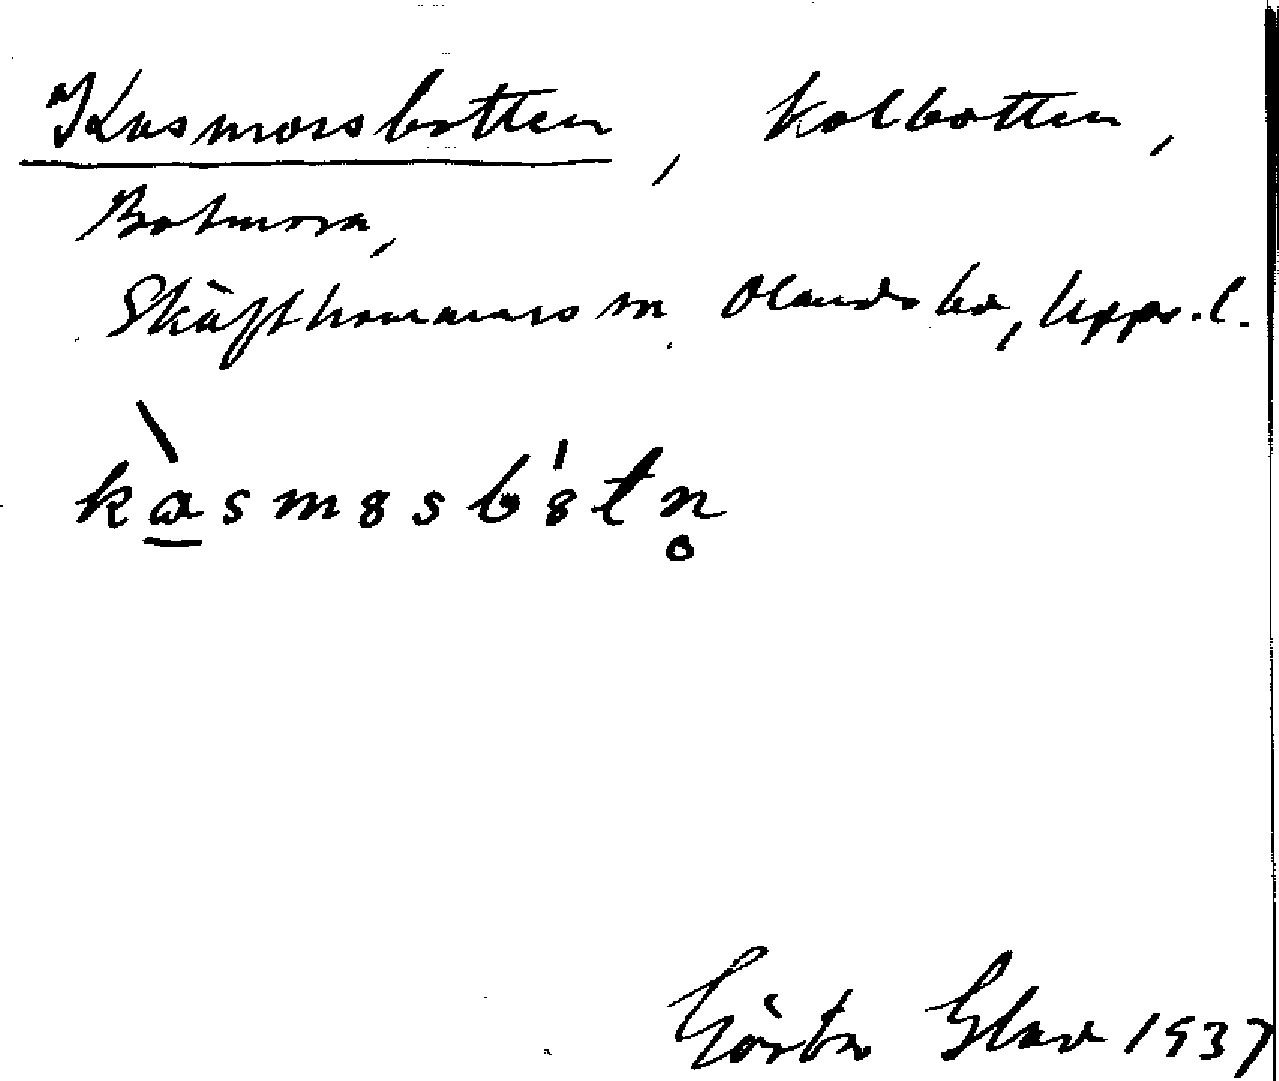 Kasmorsbotten, kolbotten,
Botmora,
Skäfthammars sn Olands hd, Upps.l.
kàsmɞsbɞ́tn̥
Gösta
1937